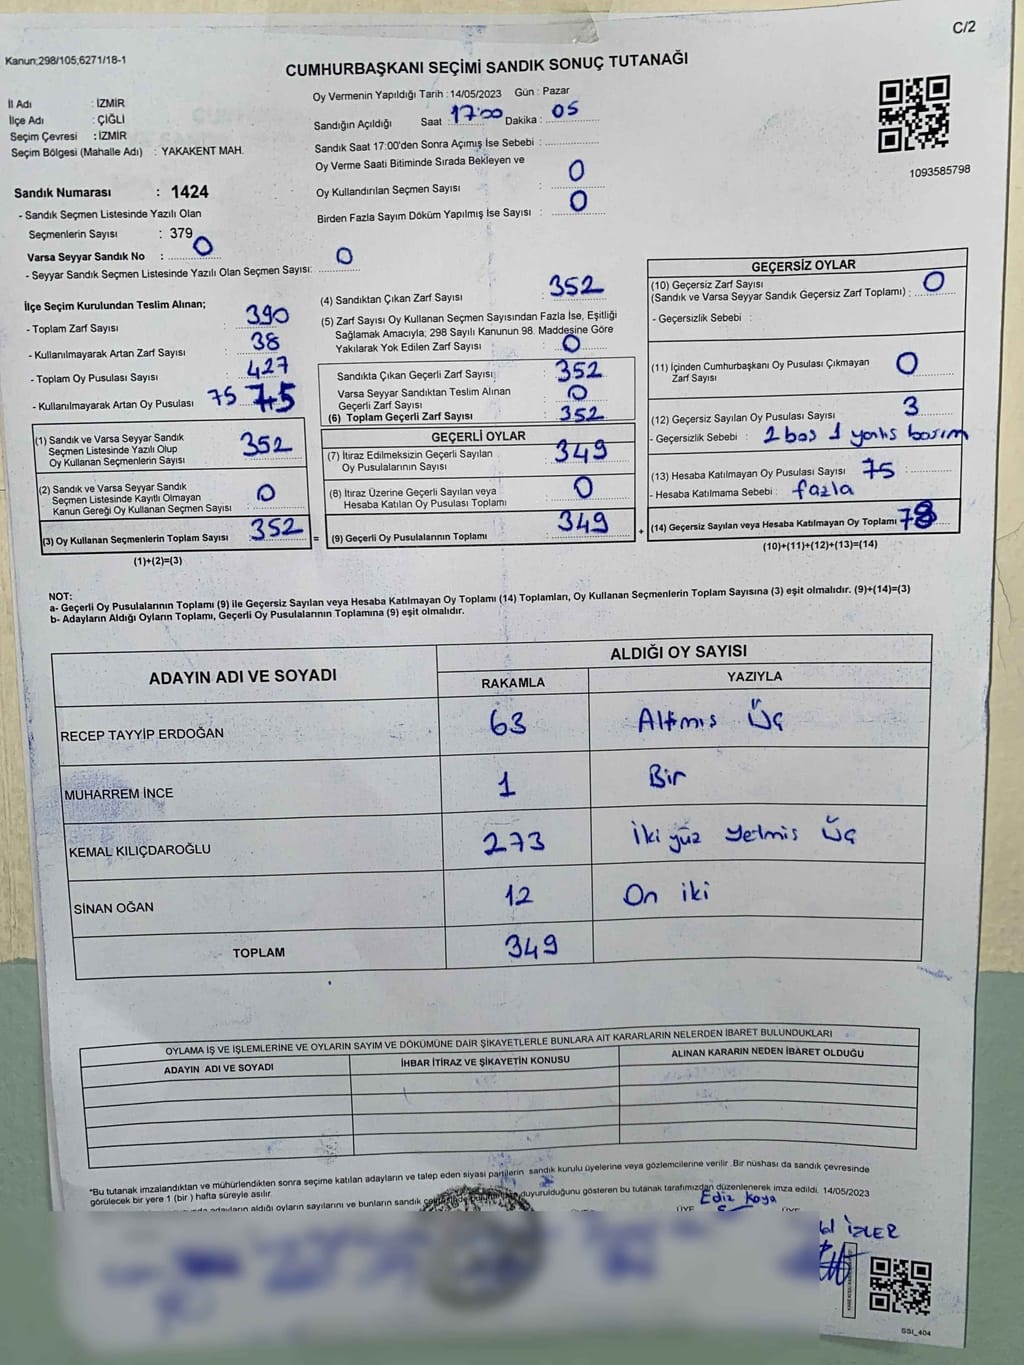 C/2
Kanun;298/105,6271/18-1
CUMHURBAŞKANI SEÇİMİ SANDIK SONUÇ TUTANAĞI
İl Adı : İZMİR
İlçe Adı : ÇİĞLİ
Seçim Çevresi : İZMİR
Seçim Bölgesi (Mahalle Adı) : YAKAKENT MAH.
Oy Vermenin Yapıldığı Tarih : 14/05/2023 Gün : Pazar
Sandığın Açıldığı Saat : 17:00 Dakika : 05
Sandık Saat 17:00'den Sonra Açımış İse Sebebi :
Oy Verme Saati Bitiminde Sırada Bekleyen ve
Oy Kullandırılan Seçmen Sayısı : 0
Birden Fazla Sayım Döküm Yapılmış İse Sayısı : 0
1093585798
Sandık Numarası : 1424
- Sandık Seçmen Listesinde Yazılı Olan
Seçmenlerin Sayısı : 379
Varsa Seyyar Sandık No : 0
- Seyyar Sandık Seçmen Listesinde Yazılı Olan Seçmen Sayısı: 0
İlçe Seçim Kurulundan Teslim Alınan;
- Toplam Zarf Sayısı 390
- Kullanılmayarak Artan Zarf Sayısı 38
- Toplam Oy Pusulası Sayısı 427
- Kullanılmayarak Artan Oy Pusulası 75 75
(1) Sandık ve Varsa Seyyar Sandık
Seçmen Listesinde Yazılı Olup
Oy Kullanan Seçmenlerin Sayısı 352
(2) Sandık ve Varsa Seyyar Sandık
Seçmen Listesinde Kayıtlı Olmayan
Kanun Gereği Oy Kullanan Seçmen Sayısı 0
(3) Oy Kullanan Seçmenlerin Toplam Sayısı 352
(1)+(2)=(3)
=
(4) Sandıktan Çıkan Zarf Sayısı : 352
(5) Zarf Sayısı Oy Kullanan Seçmen Sayısından Fazla İse, Eşitliği
Sağlamak Amacıyla; 298 Sayılı Kanunun 98. Maddesine Göre
Yakılarak Yok Edilen Zarf Sayısı : 0
Sandıkta Çıkan Geçerli Zarf Sayısı : 352
Varsa Seyyar Sandıktan Teslim Alınan
Geçerli Zarf Sayısı : 0
(6) Toplam Geçerli Zarf Sayısı 352
GEÇERLİ OYLAR
(7) İtiraz Edilmeksizin Geçerli Sayılan
Oy Pusulalarının Sayısı 349
(8) İtiraz Üzerine Geçerli Sayılan veya
Hesaba Katılan Oy Pusulası Toplamı 0
(9) Geçerli Oy Pusulalarının Toplamı 349
+
GEÇERSİZ OYLAR
(10) Geçersiz Zarf Sayısı
(Sandık ve Varsa Seyyar Sandık Geçersiz Zarf Toplamı) : 0
- Geçersizlik Sebebi :
(11) İçinden Cumhurbaşkanı Oy Pusulası Çıkmayan
Zarf Sayısı 0
(12) Geçersiz Sayılan Oy Pusulası Sayısı 3
- Geçersizlik Sebebi : 2 boş 1 yanlış basım
(13) Hesaba Katılmayan Oy Pusulası Sayısı 75 :
- Hesaba Katılmama Sebebi : fazla
(14) Geçersiz Sayılan veya Hesaba Katılmayan Oy Toplamı 78
(10)+(11)+(12)+(13)=(14)
NOT:
a- Geçerli Oy Pusulalarının Toplamı (9) ile Geçersiz Sayılan veya Hesaba Katılmayan Oy Toplamı (14) Toplamları, Oy Kullanan Seçmenlerin Toplam Sayısına (3) eşit olmalıdır. (9)+(14)=(3)
b- Adayların Aldığı Oyların Toplamı, Geçerli Oy Pusulalarının Toplamına (9) eşit olmalıdır.
ADAYIN ADI VE SOYADI
ALDIĞI OY SAYISI
RAKAMLA YAZIYLA
RECEP TAYYİP ERDOĞAN 63 Altmış Üç
MUHARREM İNCE 1 Bir
KEMAL KILIÇDAROĞLU 273 İki yüz Yetmiş Üç
SİNAN OĞAN 12 On iki
TOPLAM 349
OYLAMA İŞ VE İŞLEMLERİNE VE OYLARIN SAYIM VE DÖKÜMÜNE DAİR ŞİKAYETLERLE BUNLARA AİT KARARLARIN NELERDEN İBARET BULUNDUKLARI
ADAYIN ADI VE SOYADI İHBAR İTİRAZ VE ŞİKAYETİN KONUSU ALINAN KARARIN NEDEN İBARET OLDUĞU
*Bu tutanak imzalandıktan ve mühürlendikten sonra seçime katılan adayların ve talep eden siyasi partilerin sandık kurulu üyelerine veya gözlemcilerine verilir .Bir nüshası da sandık çevresinde
görülecek bir yere 1 (bir ) hafta süreyle asılır.
adayların aldığı oyların sayılarını ve bunların sandık duyurulduğunu gösteren bu tutanak tarafımızdan düzenlenerek imza edildi. 14/05/2023
Ediz Koya
ÜYE ÜYE
İZLER
SSI_404